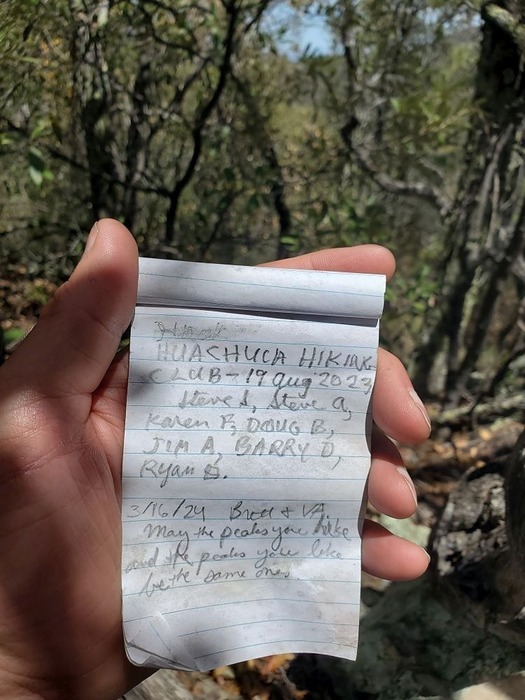 HUACHUCA HIKING
CLUB - 19 aug 2023
Steve S, Steve A,
Karen P, DOUG B,
JIM A, BARRY D,
Ryan
3/16/24 Brett + VA.
May the peaks you hike
and the peaks you like
be the same ones